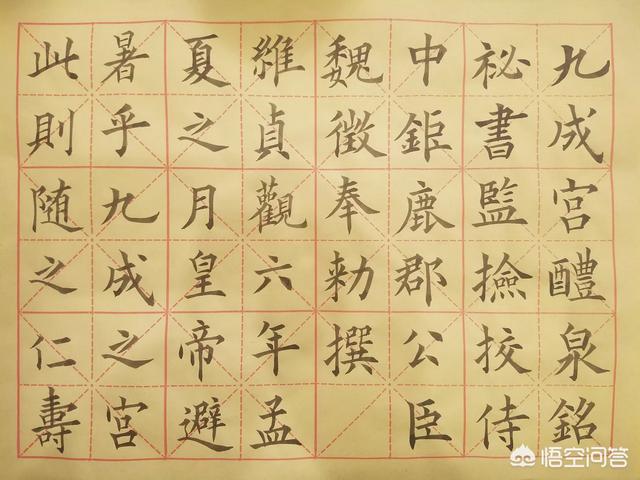 九成宮醴泉銘
祕書監撿挍侍
中鉅鹿郡公臣
魏徵奉勑撰
維貞觀六年孟
夏之月皇帝避
暑乎九成之宮
此則随之仁壽
悟空问答